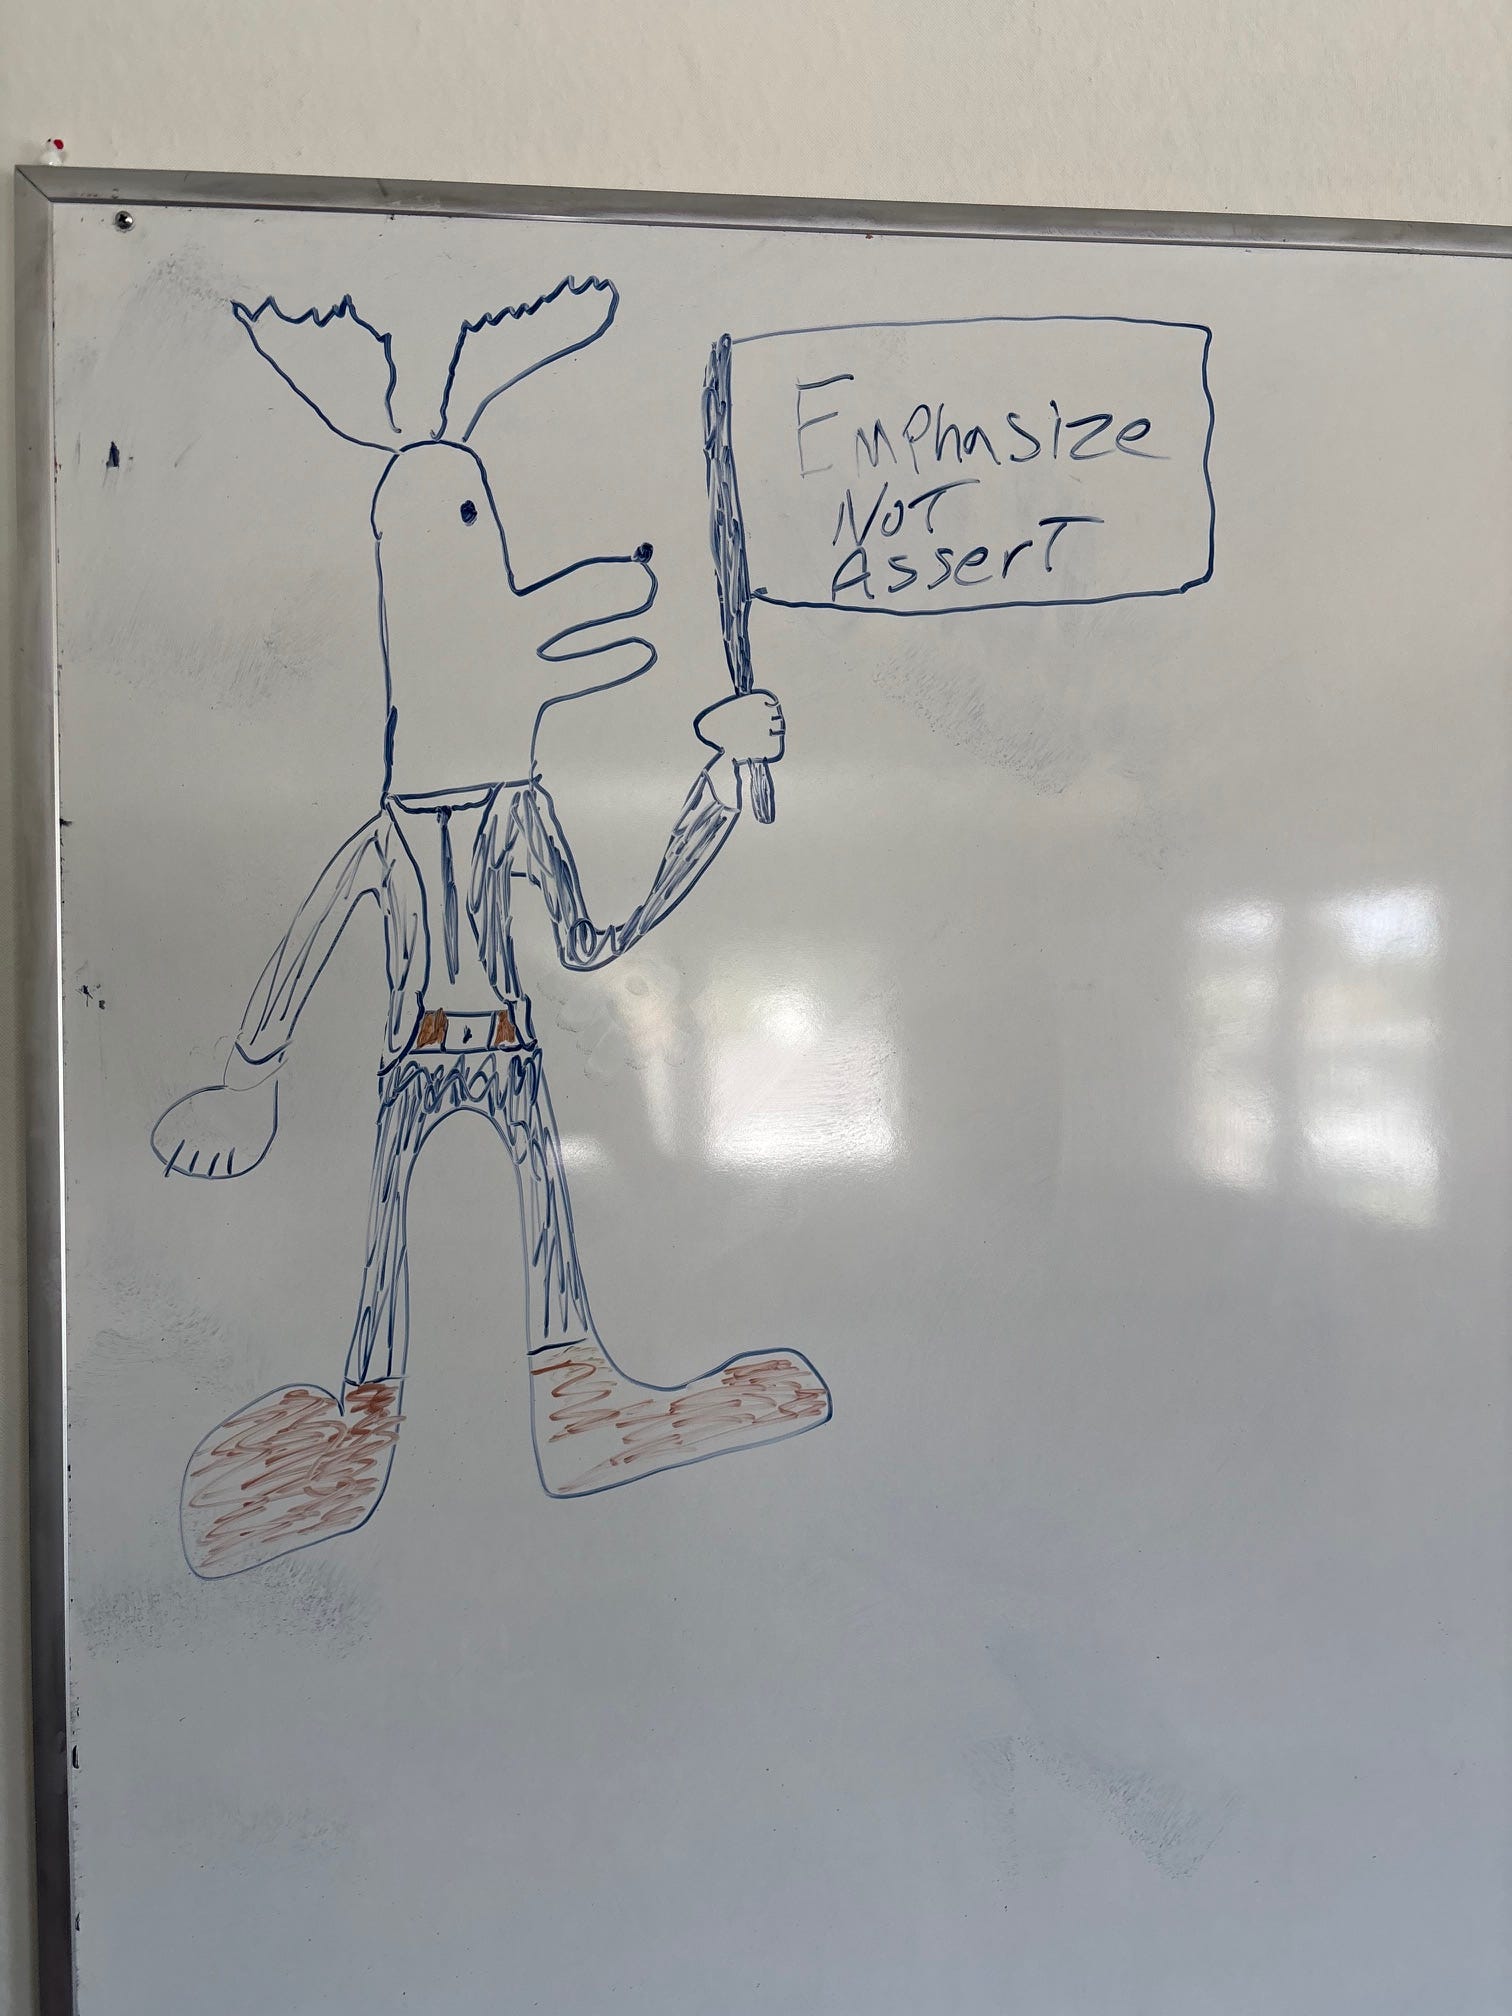 Emphasize
Not
Assert